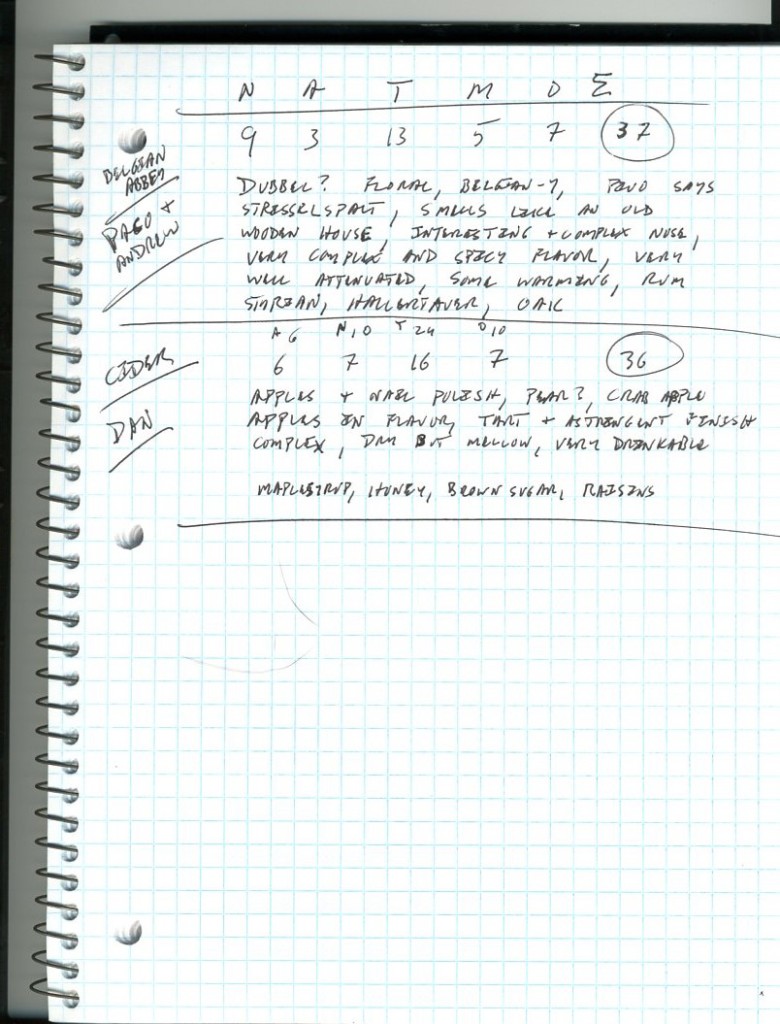 N A T M O Σ
9 3 13 5 7 37
BELGIAN
ABBEY
PAGO +
ANDREW
DUBBEL? FLORAL, BELGIAN-Y, SAYS
STRESSELSPALT, SMELLS LIKE AN OLD
WOODEN HOUSE, INTERESTING + COMPLEX NOSE,
VERY COMPLEX AND SPICY FLAVOR, VERY
WELL ATTENUATED, SOME WARMING, RUM
STYRIAN, HALLERTAUER, OAK
A 6 N 10 T 24 O 10
6 7 16 7 36
CIDER
DAN
APPLES + NAIL POLISH, PEAR?, CRAB APPLE
APPLES IN FLAVOR, TART + ASTRINGENT FINISH
COMPLEX, DRY BUT MELLOW, VERY DRINKABLE
MAPLE SYRUP, HONEY, BROWN SUGAR, RAISINS